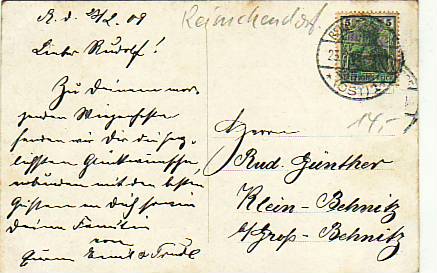 R. d. 22/2. 09
Reinickendorf.
Lieber Rudolf!
Zu Deinem mor-
genden Wiegenfeste
senden wir Dir die herz-
lichsten Glückwünsche,
verbunden mit den besten
Grüssen an Dich sowie
Deine Familie
von
Emil & Trudl
5 5
(OST)
14,-
Herrn
Rud. Günther
Klein-Behnitz
b/Groß-Behnitz